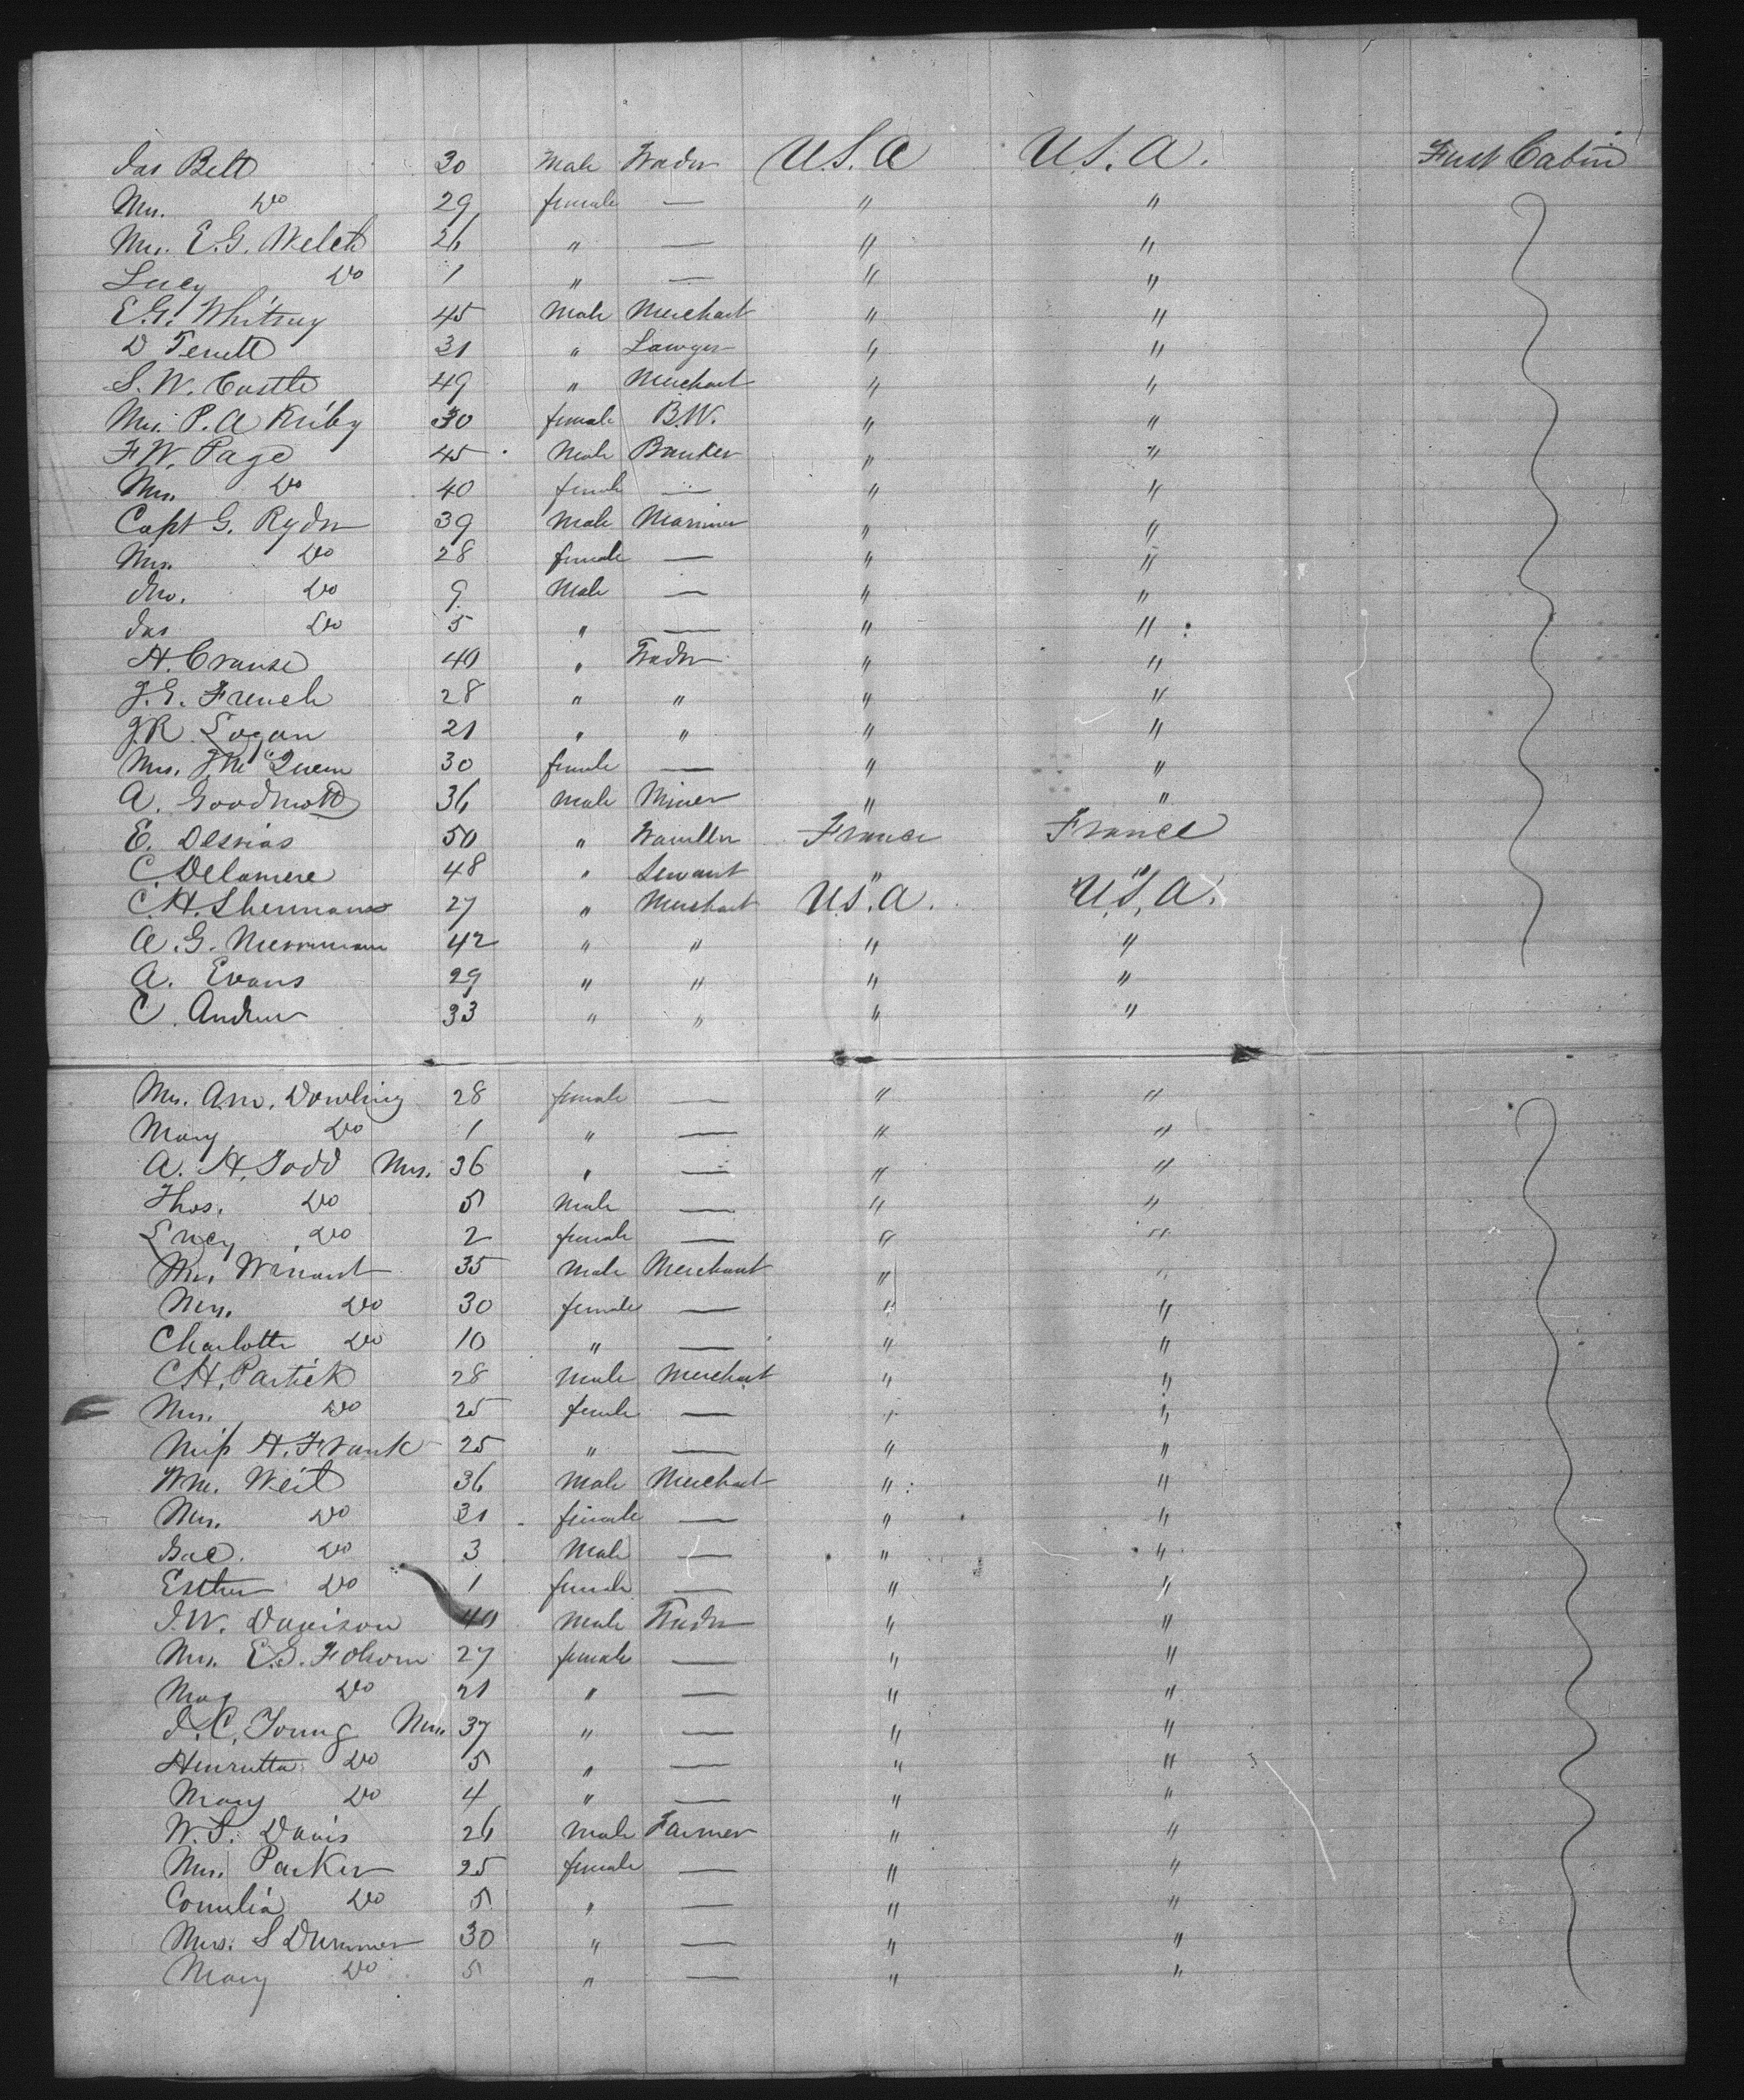 Jas Belt 30 Male Trader U.S.A U.S.A. First Cabin
Mrs. Do 29 female — " "
Mrs. E.G. Welch 26 " — " "
Lucy Do 1 " — " "
E.G. Whitney 45 Male Merchant " "
D Terrett 31 " Lawyer " "
S. W. Castle 49 " Merchant " "
Mrs. P. A Kirby 30 female B.W. " "
F W. Page 45 Male Banker " "
Mrs. Do 40 female — " "
Capt G. Ryder 39 Male Mariner " "
Mrs. Do 28 female — " "
Jno. Do 9 Male — " "
Jas Do 5 " — " "
H. Crause 40 " Trader " "
J. E. French 28 " " " "
J.R Logan 21 " " " "
Mrs. 30 female — " "
A. 36 Male Miner " "
E. Dessias 50 " Traveller France France
C. Delamere 48 " Servant " "
C. H. Shermans 27 " Merchant U.S.A. U.S.A.
A. G. Merriman 42 " " " "
A. Evans 29 " " " "
C. Andrew 33 " " " "
Mrs. A.M. Dowling 28 female — " "
Mary Do 1 " — " "
A. H. Todd Mrs. 36 " — " "
Thos. Do 5 Male — " "
Lucy Do 2 female — " "
Mr. Winant 35 Male Merchant " "
Mrs. Do 30 female — " "
Charlotte Do 10 " — " "
C H. Partick 28 Male Merchant " "
Mrs. Do 25 female — " "
Miss H. Frank 25 " — " "
Wm. Weil 36 Male Merchant " "
Mrs. Do 31 female — " "
Do 3 Male — " "
Esther Do 1 female — " "
J. W. Davison 40 Male Trader " "
Mrs. E. S. Folsom 27 female — " "
May Do 21 " — " "
J. C. Young Mrs. 37 " — " "
Henrietta Do 5 " — " "
Mary Do 4 " — " "
W. S. Davis 26 Male Farmer " "
Mrs. Parker 25 female — " "
Cornelia Do 5 " — " "
Mrs. S Dummer 30 " — " "
Mary Do 5 " — " "